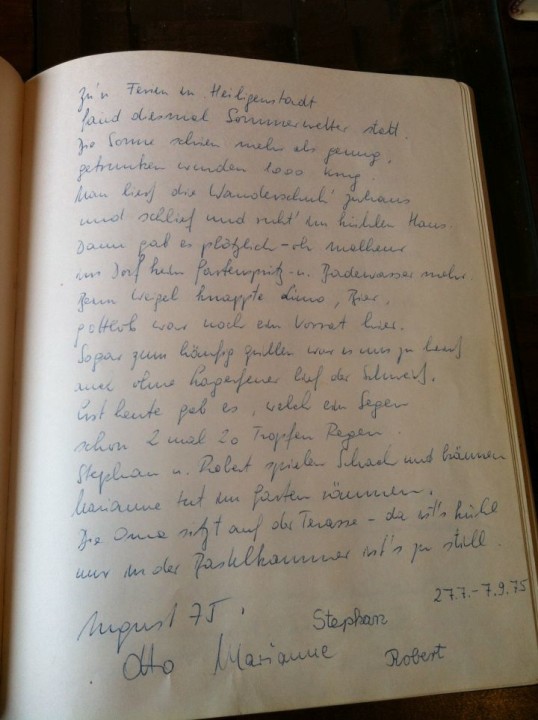 Zu'n Ferien in Heiligenstadt
fand diesmal Sommerwetter statt.
Die Sonne schien mehr als genug,
getrunken wurden 1000 Krug.
Man ließ die Wanderschuh' zuhaus
und schlief und ruht' im kühlen Haus.
Dann gab es plötzlich - oh malheur
im Dorf kein Gartenspritz- u. Badewasser mehr.
Beim Wegel knappte Limo, Bier,
gottlob war noch ein Vorrat hier.
Sogar zum häufig grillen war es uns zu heiß
auch ohne Lagerfeuer lief der Schweiß.
Erst heute gab es, welch ein Segen
schon 2 mal 20 Tropfen Regen.
Stephan u. Robert spielen Schach und bräunen
Marianne tut im Garten räumen.
Die Oma sitzt auf der Terasse - da ist's kühl
nur in der Bastelkammer ist's zu still.
27.7. - 7.9.75
August 75.
Stephan
Otto Marianne
Robert